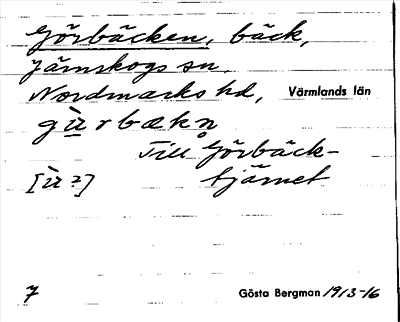 Görbäcken, bäck,
Järnskogs sn.
Nordmarks hd, Värmlands län
gù̱rbækn̥
Till Görbäck-
tjärnet
[ù̱ ?]
7
Gösta Bergman 1913-16